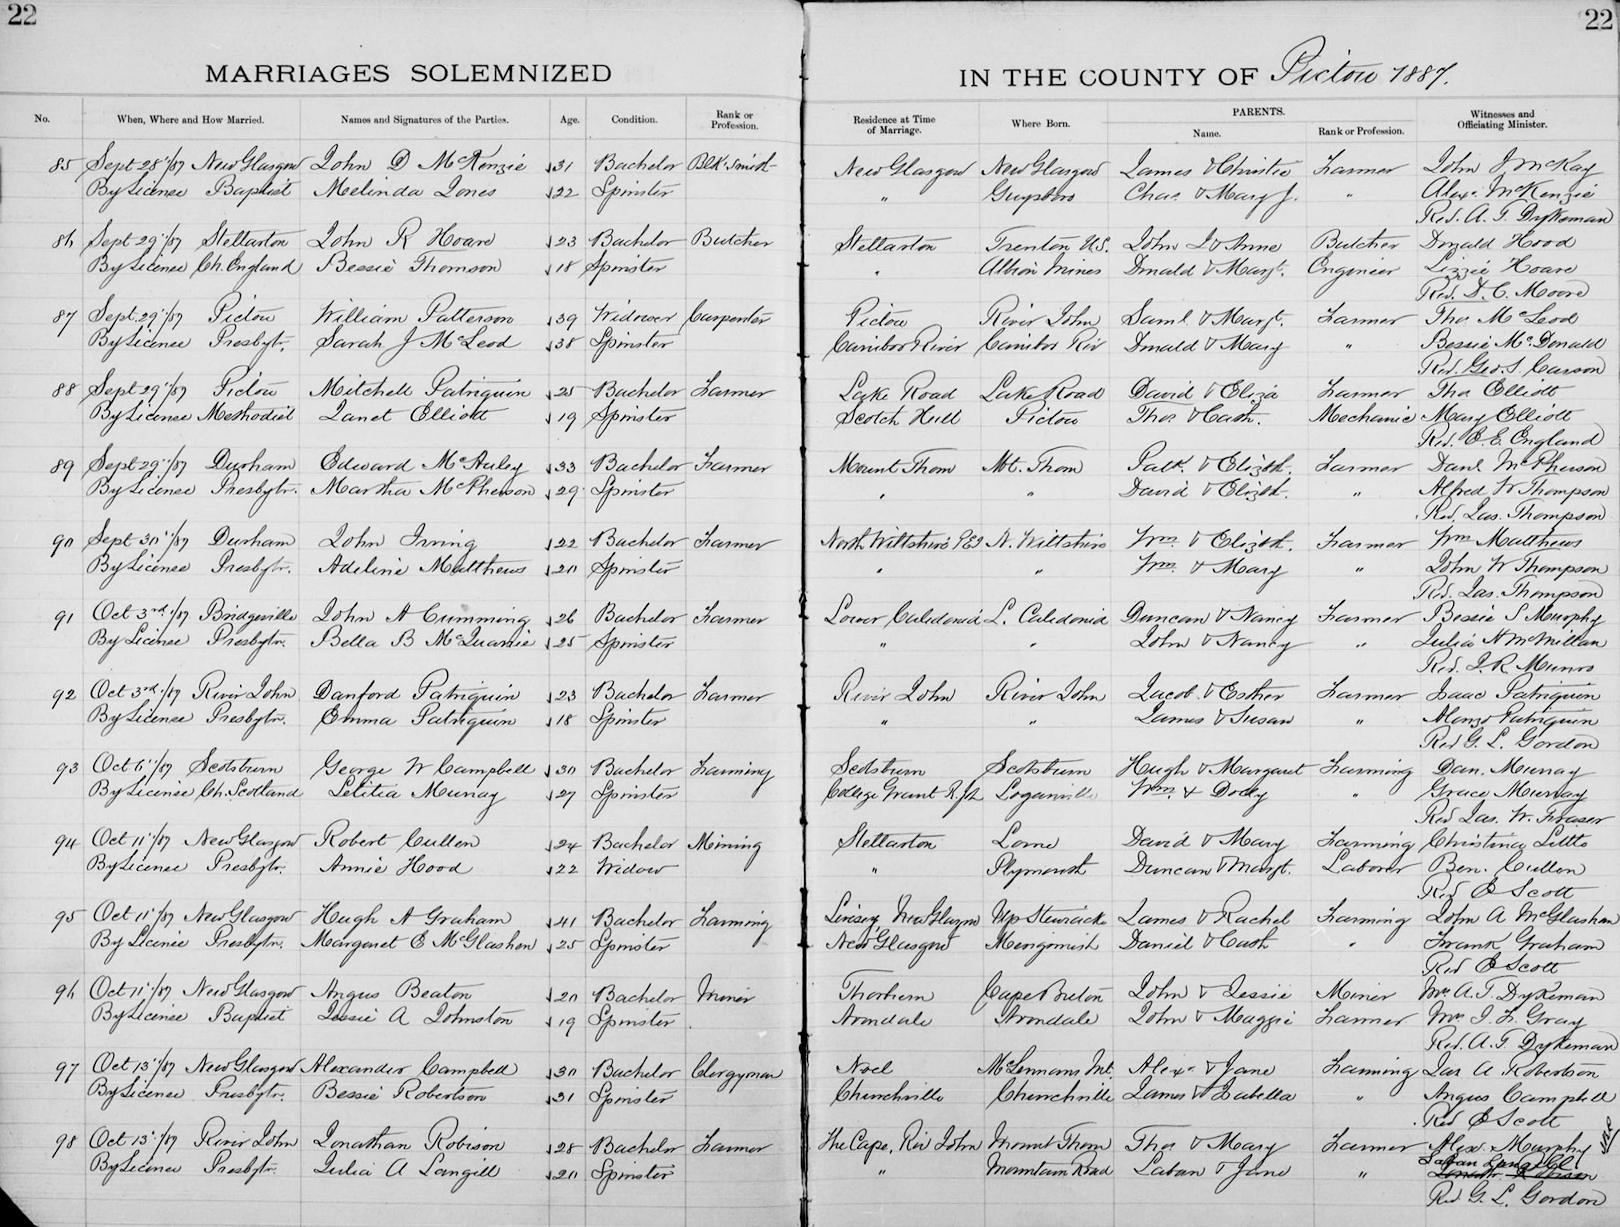 22
22
MARRIAGES SOLEMNIZED IN THE COUNTY OF Pictou 1887.
No. When, Where and How Married. Names and Signatures of the Parties. Age. Condition. Rank or Profession. Residence at Time of Marriage. Where Born. PARENTS. Name. Rank or Profession. Witnesses and Officiating Minister.
85 Sept 28"/87 New Glasgow John D McKenzie 31 Bachelor Blk Smith New Glasgow New Glasgow James & Christie Farmer John J McKay
By License Baptist Melinda Jones 22 Spinster " Guysboro Chas. & Mary J. " Alexr. McKenzie
Rev. A. T. Dykeman
86 Sept 29"/87 Stellarton John R Hoare 23 Bachelor Butcher Stellarton Trenton U.S. John & Anne Butcher Donald Hood
By License Ch. England Bessie Thomson 18 Spinster " Albion Mines Donald & Margt. Engineer Lizzie Hoare
Rev. D. C. Moore
87 Sept. 29"/87 Pictou William Patterson 39 Widower Carpenter Pictou River John Saml. & Margt. Farmer Tho. McLeod
By License Presbytr. Sarah J McLeod 38 Spinster Caribor River Caribor Riv Donald & Mary " Bessie McDonald
Rev. Geo. S. Carson
88 Sept 29"/87 Pictou Mitchell Patriquin 25 Bachelor Farmer Lake Road Lake Road David & Eliza Farmer Tho Elliott
By License Methodist Janet Elliott 19 Spinster Scotch Hill Pictou Thos. & Cath. Mechanic Mary Elliott
Rev. E. E. England
89 Sept 29"/87 Durham Edward McAuley 33 Bachelor Farmer Mount Thom Mt. Thom Patk. & Elizth. Farmer Danl McPherson
By License Presbytr. Martha McPherson 29 Spinster " " David & Elizth. " Alfred W Thompson
Rev. Jas. Thompson
90 Sept 30"/87 Durham John Irving 22 Bachelor Farmer North Wiltshire PEI N. Wiltshire Wm. & Elizth. Farmer Wm Matthews
By License Presbytr. Adeline Matthews 20 Spinster " " Wm. & Mary " John W Thompson
Rev. Jas. Thompson
91 Oct 3rd/87 Bridgeville John A Cumming 26 Bachelor Farmer Lower Caledonia L. Caledonia Duncan & Nancy Farmer Bessie S Murphy
By License Presbytr. Bella B McQuarrie 25 Spinster " " John & Nancy " Julia A McMillan
Rev. J. R. Munro
92 Oct 3rd/87 River John Danford Patriquin 23 Bachelor Farmer River John River John Jacob & Esther Farmer Isaac Patriquin
By License Presbytr. Emma Patriquin 18 Spinster " " James & Susan " Alonzo Patriquin
Rev G. L. Gordon
93 Oct 6"/87 Scotsburn George W Campbell 30 Bachelor Farming Scotsburn Scotsburn Hugh & Margaret Farming Dan. Murray
By License Ch. Scotland Letitia Murray 27 Spinster College Grant Loganville Wm. & Dolly " Grace Murray
Rev Jas. W. Fraser
94 Oct 11"/87 New Glasgow Robert Cullen 24 Bachelor Mining Stellarton Lorne David & Mary Farming Christina Little
By License Presbytr. Annie Hood 22 Widow " Plymouth Duncan & Margt. Laborer Ben. Cullen
Rev E Scott
95 Oct 11"/87 New Glasgow Hugh A Graham 41 Bachelor Farming New Glasgow Up Stewiacke James & Rachel Farming John A McGlashan
By License Presbytr. Margaret E McGlashen 25 Spinster New Glasgow Merigomish Daniel & Cath " Frank Graham
Rev E Scott
96 Oct 11"/87 New Glasgow Angus Beaton 20 Bachelor Miner Thorburn Cape Breton John & Jessie Miner Mrs A. T. Dykeman
By License Baptist Jessie A Johnston 19 Spinster Avondale Avondale John & Maggie Farmer Mrs J. F. Gray
Rev. A. T. Dykeman
97 Oct 13"/87 New Glasgow Alexander Campbell 30 Bachelor Clergyman Noel McLennans Mt. Alexr. & Jane Farming Jas A Robertson
By License Presbytr. Bessie Robertson 31 Spinster Churchville Churchville James & Isabella " Angus Campbell
Rev E Scott
98 Oct 13"/87 River John Jonathan Robison 28 Bachelor Farmer The Cape, Riv John Mount Thom Thos & Mary Farmer Alex. Murphy
By License Presbytr. Julia A Langill 20 Spinster " Mountain Road Laban & Jane " Laban Langill
Rev G. L. Gordon